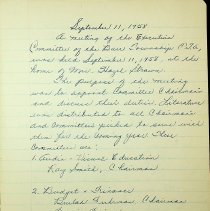 September 11, 1958
A meeting of the Executive
Committee of the Dover Township P.T.A.
was held September 11, 1958, at the
home of Mrs. Hazel
The purpose of the meeting
was to appoint Committee Chairmen
and discuss their duties. Literature
was distributed to all Chairmen
and Committees picked to serve with
them for the coming year. These
Committees are:
1. Audio-Visual Education
Ray Smith, Chairman
2. Budget & Finance
Chairman